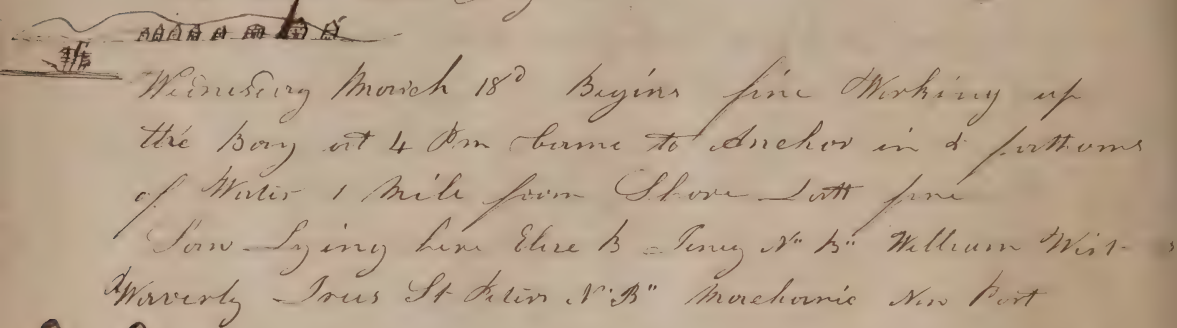 Wednesday March 18d Begins fine Working up
the Bay at 4 Pm Came to Anchor in fathoms
of Water 1 Mile from Shore Latt fine
Saw Lying here Eliza B N" B" William Wirt
Waverly St Peters N" B" Mechanic New Port